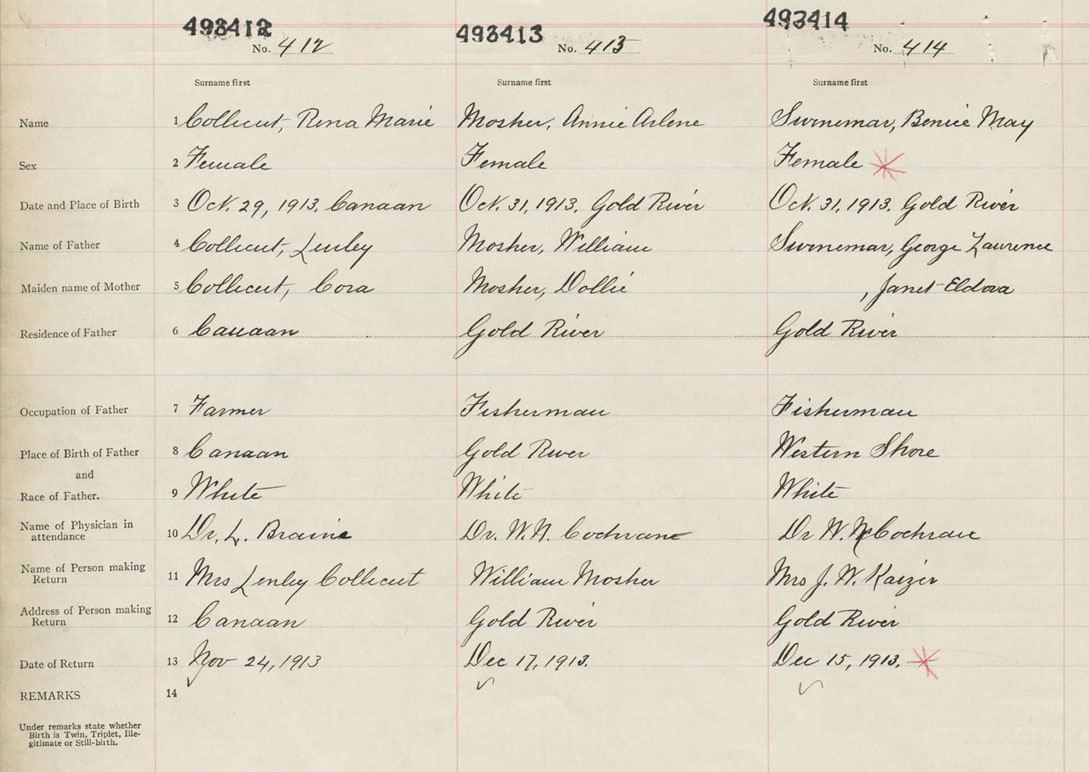 493412 493413 493414
No. 412 No. 413 No. 414
Surname first Surname first Surname first
Name 1 Collicut, Rena Marie Mosher, Annie Arlene Swinemar, Bernice May
Sex 2 Female Female Female
Date and Place of Birth 3 Oct. 29, 1913. Canaan Oct. 31, 1913. Gold River Oct. 31, 1913. Gold River
Name of Father 4 Collicut, Lenley Mosher, William Swinemar, George Lawrence
Maiden name of Mother 5 Collicut, Cora Mosher, Dollie , Janet Eldora
Residence of Father 6 Canaan Gold River Gold River
Occupation of Father 7 Farmer Fisherman Fisherman
Place of Birth of Father 8 Canaan Gold River Western Shore
and
Race of Father. 9 White White White
Name of Physician in
attendance 10 Dr. L. Braine Dr. W. N. Cochrane Dr W. N. Cochran
Name of Person making
Return 11 Mrs Lenley Collicut William Mosher Mrs J. W. Kaizer
Address of Person making
Return 12 Canaan Gold River Gold River
Date of Return 13 Nov 24, 1913 Dec 17, 1913. Dec 15, 1913.
REMARKS 14
Under remarks state whether
Birth is Twin, Triplet, Ille-
gitimate or Still-birth.